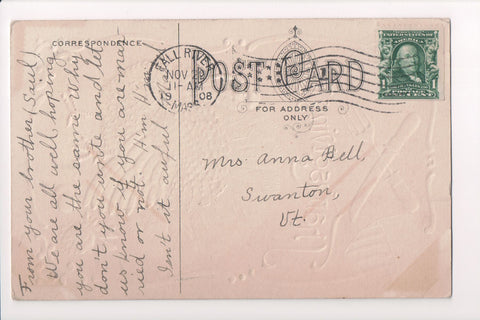 CORRESPONDENCE
From your brother (Saul)
We are all well, hoping
you are the same. Why
don't you write and let
us know if you are mar
ried or not. Hi'm H
Isn't it awful
FALL RIVER
NOV
11-AM
08
MASS
POST CARD
FOR ADDRESS
ONLY
Mrs. Anna Bell,
Swanton,
Vt.